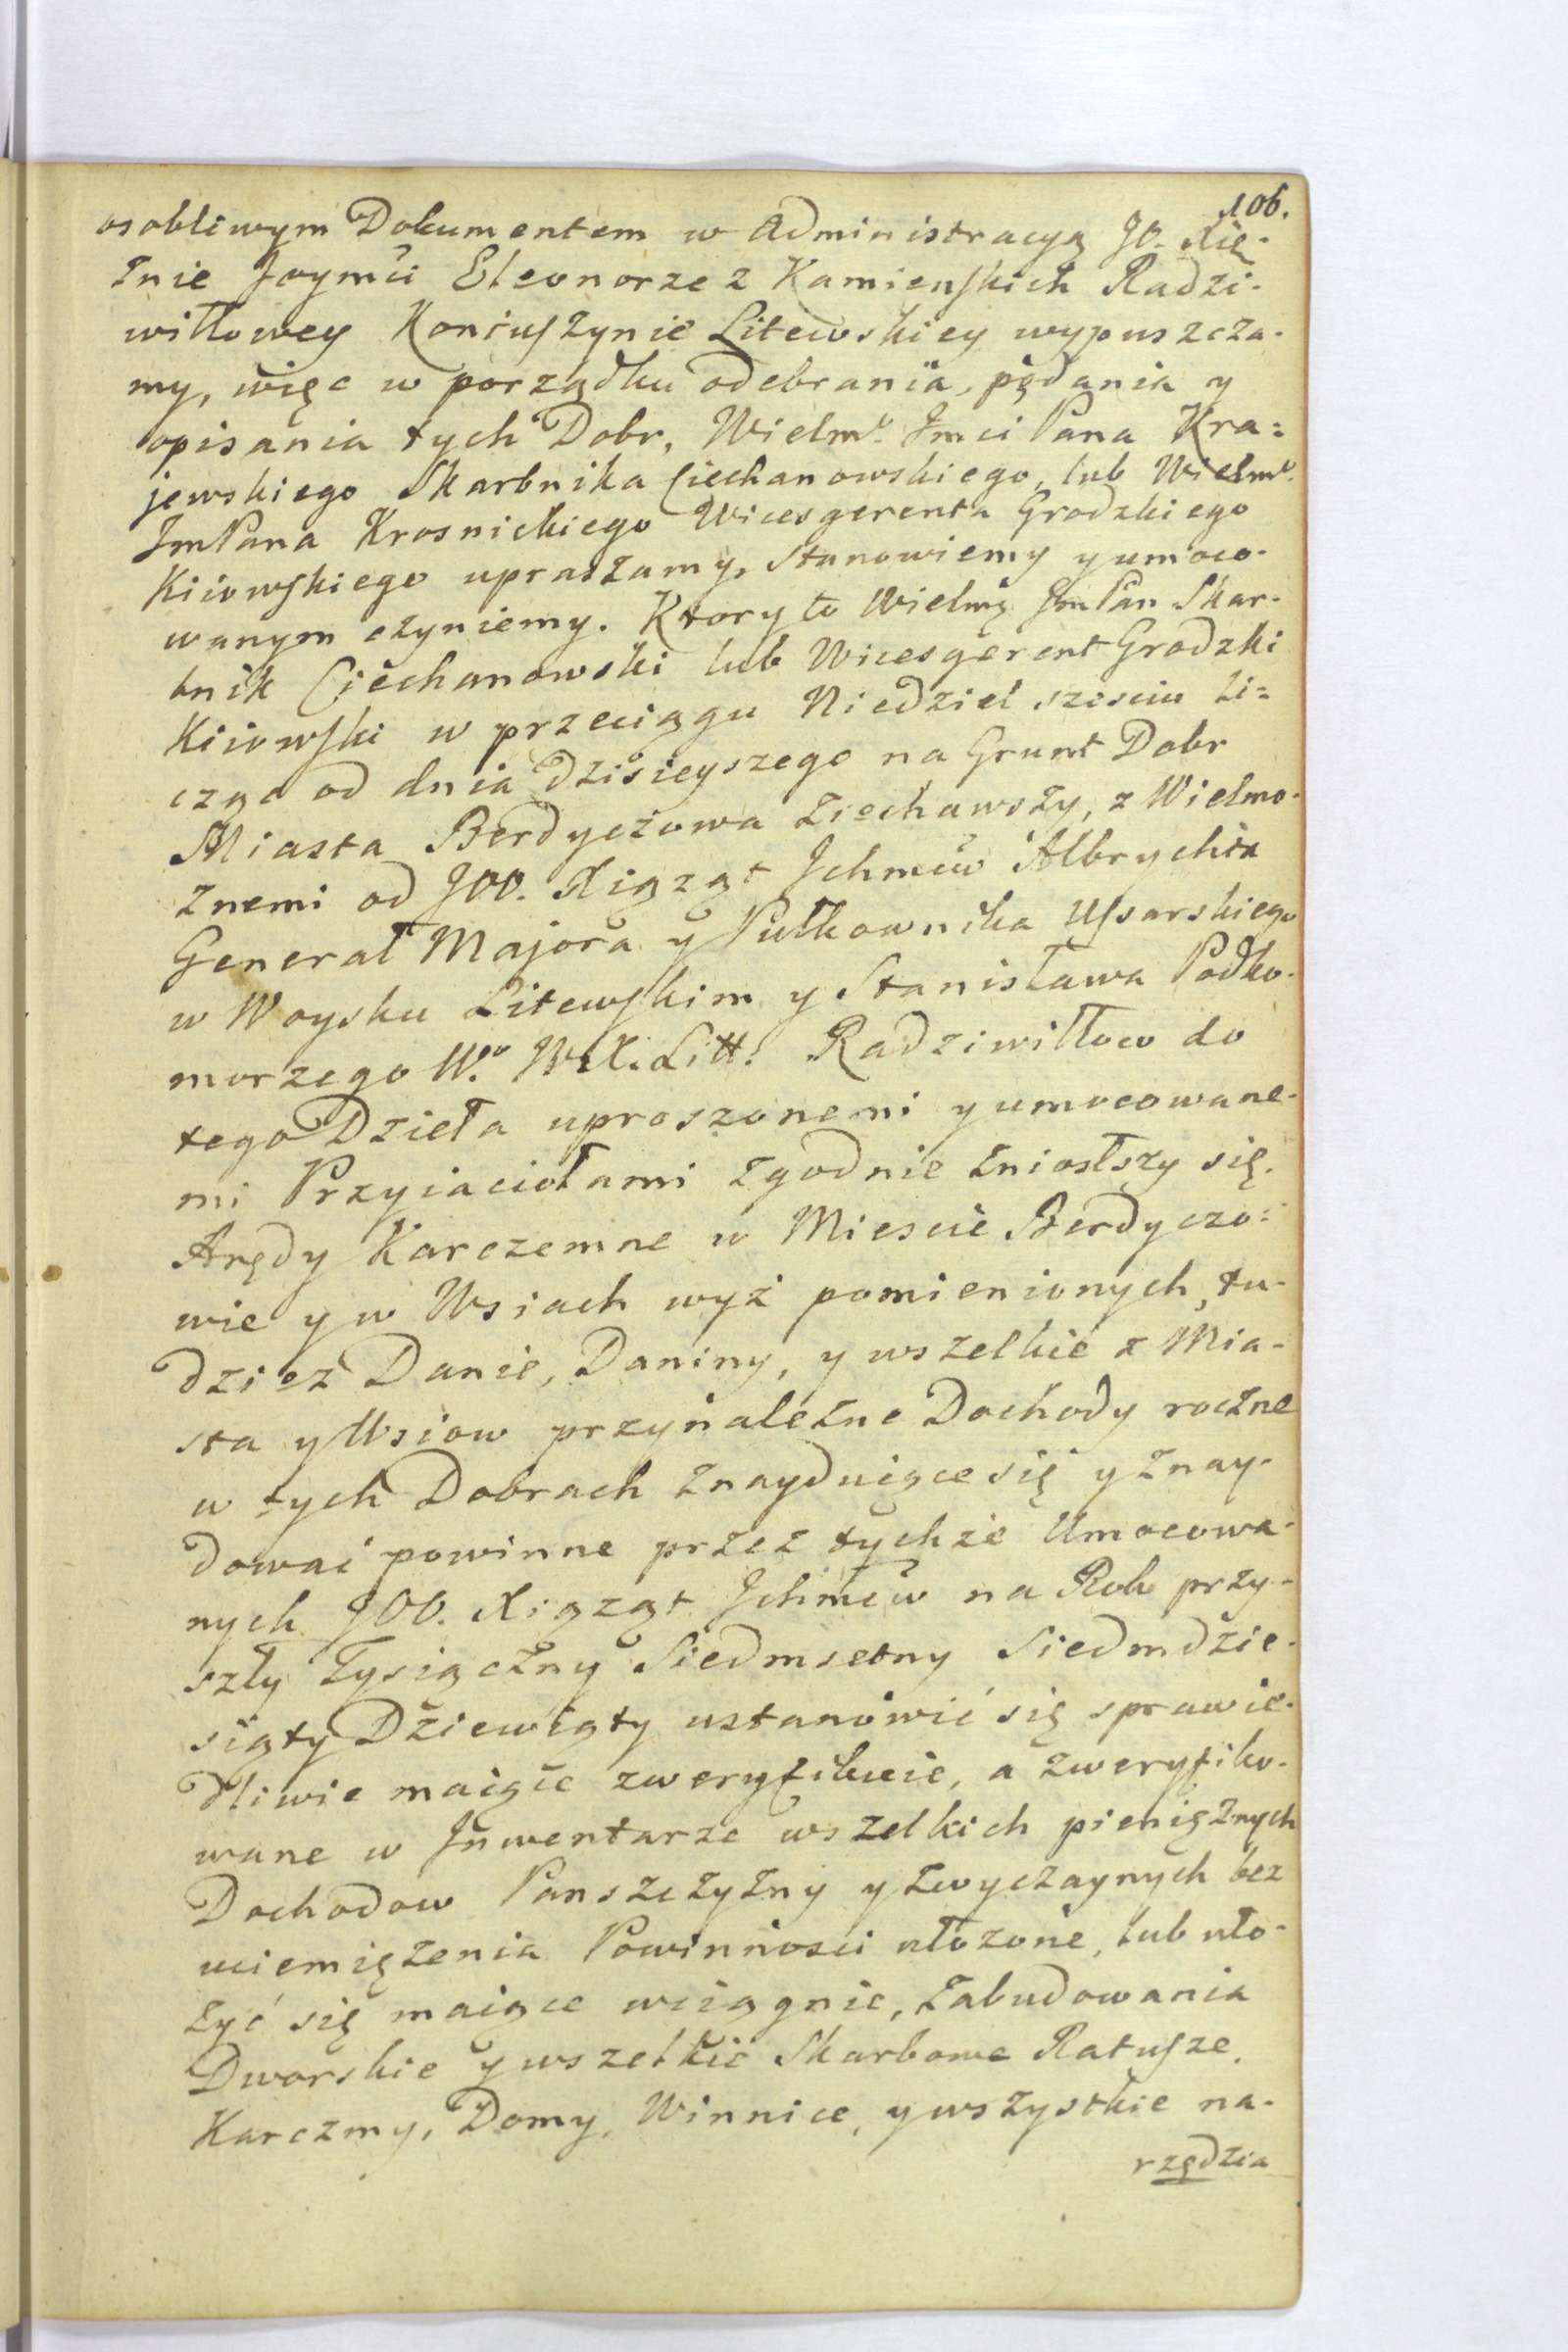 106.
osobliwym Dokumentem w Administracyą JO. Xię-
żnie Jeymći Eleonorze z Kamienskich Radzi-
wiłłowey Koniuszynie Litewskiey wypuszcza-
my, więc w porządku odebrania, pędania y
opisania tych Dobr, Wielmo. Jmci Pana Kra=
jewskiego Skarbnika Ciechanowskiego, lub Wielmo.
JmPana Krosnickiego Wicesgerenta Grodzkiego
Kiiowskiego upraszamy, stanowiemy y umoco-
wanym czyniemy. Ktory to Wielmą JmPan Skar-
bnik Ciechanowski lub Wicesgerent Grodzki
Kiiowski w przeciągu Niedziel sześciu li=
cząc od dnia dzisieyszego na Grunt Dobr
Miasta Berdyczowa ziechawszy, z Wielmo-
żnemi od JOO. Xiążąt Jchmćiw Albrychta
Generał Majora y Pułkownika Ussarskiego
w Woysku Litewskim y Stanisława Podko-
morzego Wo. W.X.Litt: Radziwiłłow do
tego Dzieła uproszonemi y umocowane-
mi Przyiaciołami zgodnie zniosłszy się.
Arędy Karczemne w Miescie Berdyczo=
wie y w Wsiach wyż pomienionych, tu-
dzież Danie, Daniny, y wszelkie z Mia-
sta y Wsiow przynależne Dochody roczne
w tych Dobrach znayduiące się y znay-
dować powinne przez tychże Umocowa-
nych JOO. Xiążąt Jchmćiw na Rok przy-
szły Tysiączny Siedmsetny Siedmdzie-
siąty Dziewiąty ustanowić się sprawie-
dliwie maiące zweryfikuie, a zweryfiko-
wane w Inwentarze wszelkich pieniężnych
Dochodow Panszczyzny y zwyczaynych bez
uciemiężenia Powinnosci ułożone, lub uło-
żyć się maiące wciągnie, zabudowania
Dworskie y wszelkie Skarbowe Ratusze,
Karczmy, Domy, Winnice, y wszystkie na-
rzędzia